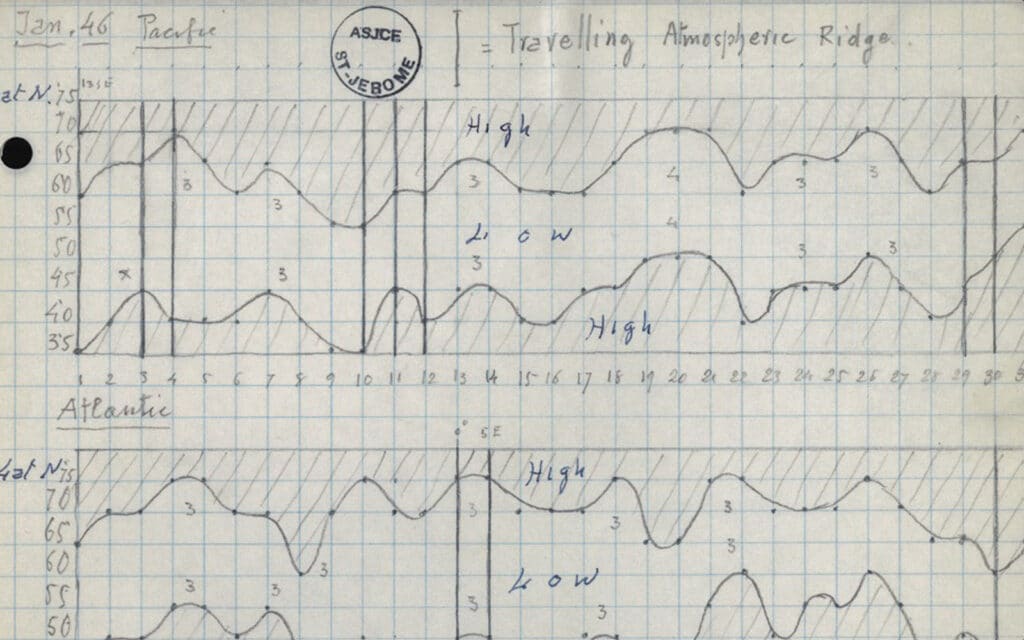 Jan. 46 Pacific
ASJCE
ST-JEROME
= Travelling Atmospheric Ridge.
Lat N. 75 135E
70
High
65
60
3 3 3 4 3 3
55
50
Low
4
45
x 3 3 3 3
40
High
35
1 2 3 4 5 6 7 8 9 10 11 12 13 14 15 16 17 18 19 20 21 22 23 24 25 26 27 28 29 30 3
Atlantic
0° 5E
Lat N. 75
High
70
3 3 3 3
65
3
60
3
Low
55
3 3 3 3
50